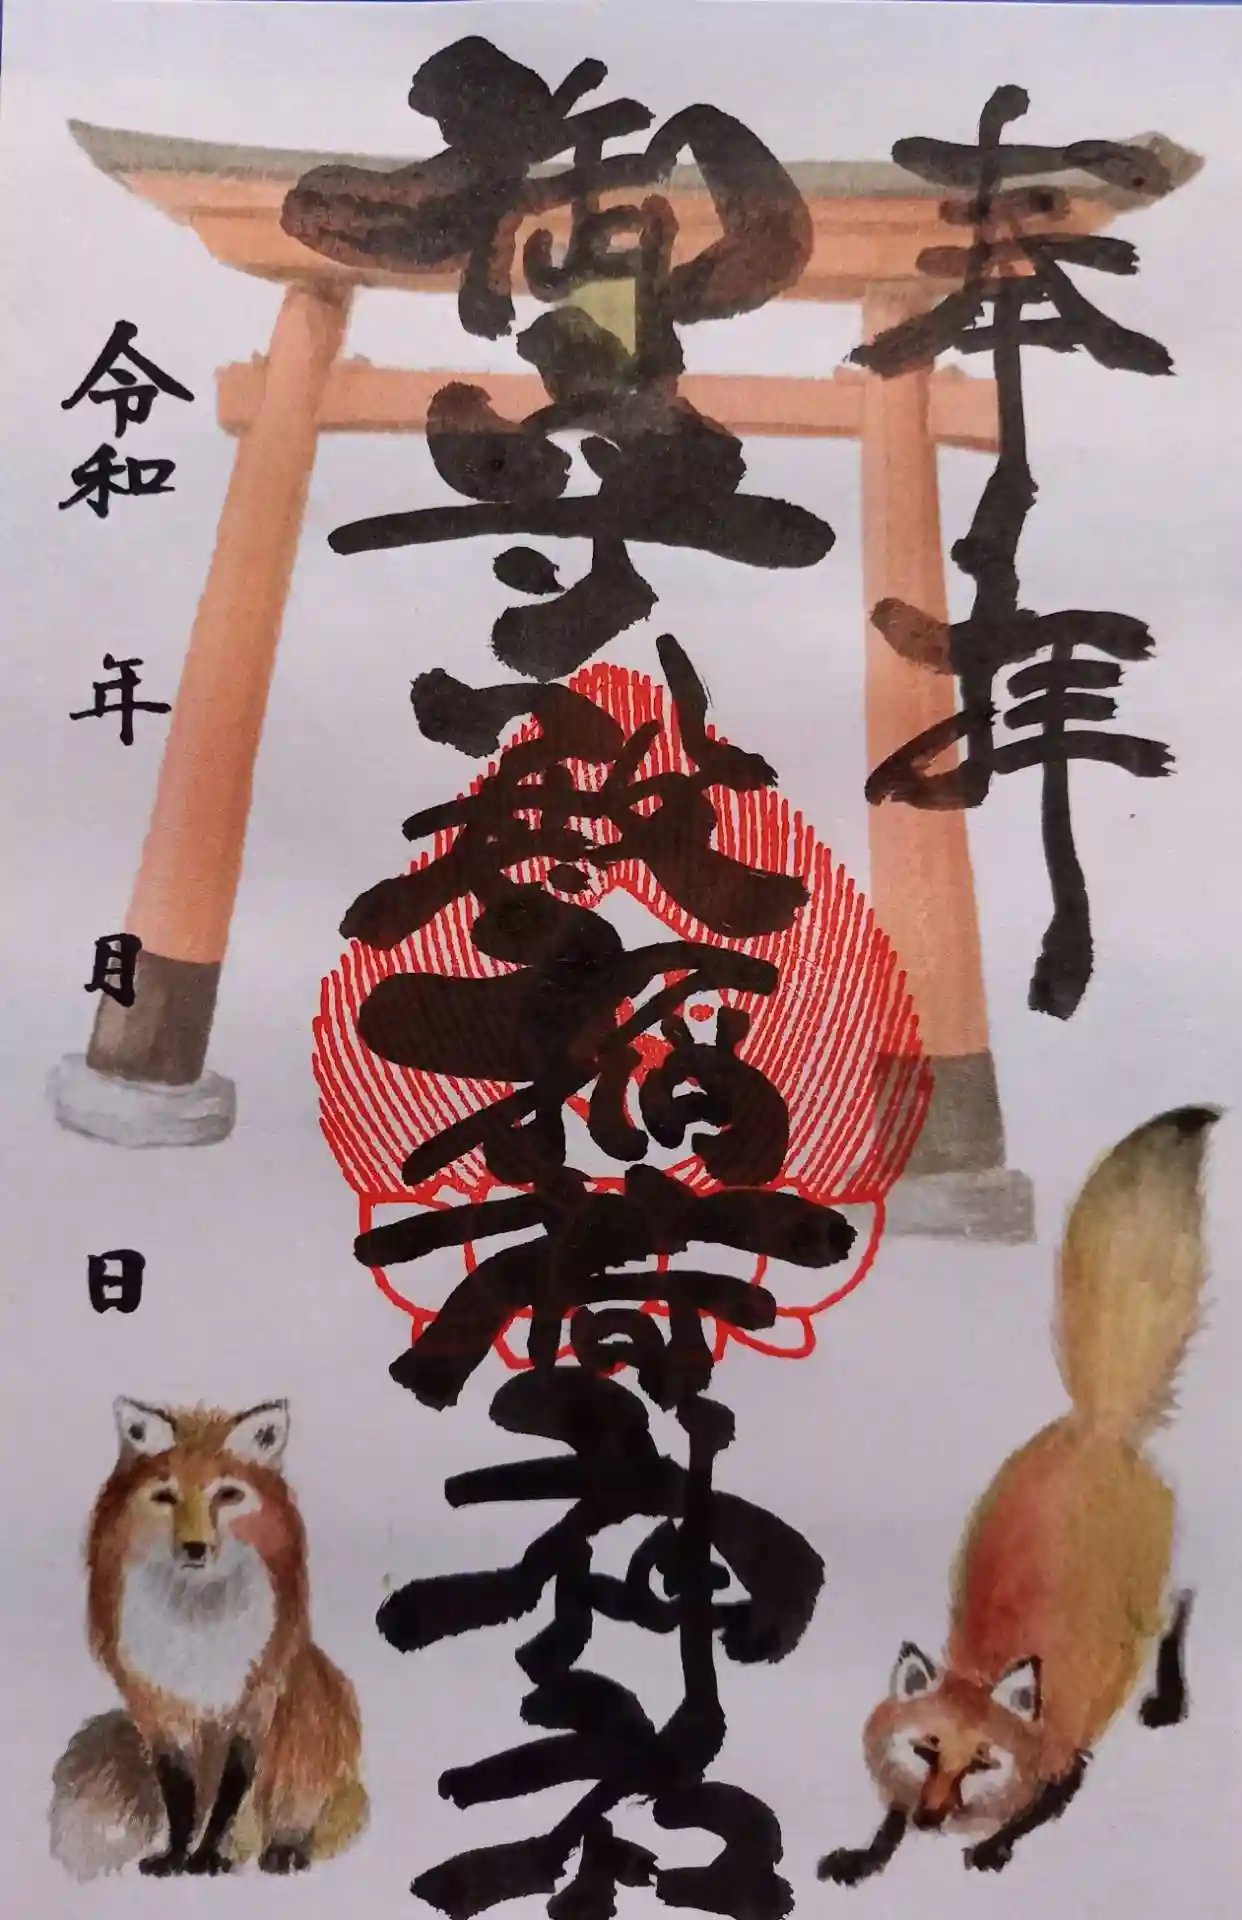 奉拝
御稲荷神社
令和 年 月 日